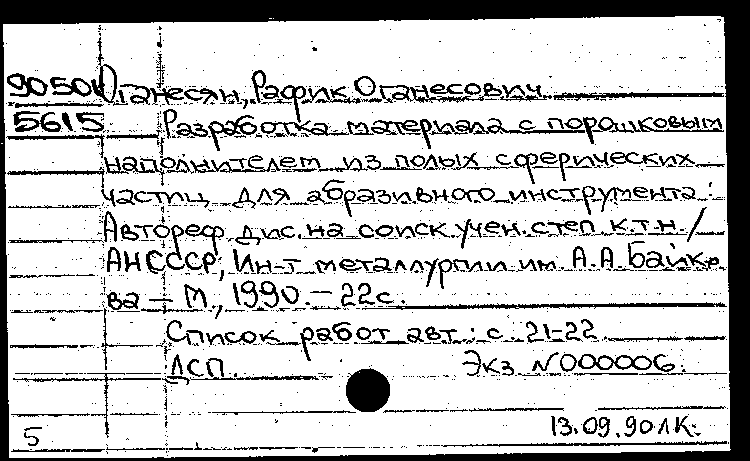 9050к Оганесян, Рафик Оганесович
5615 Разработка материала с порошковым
наполнителем из полых сферических
частиц для абразивного инструмента:
Автореф дис. на соиск. учен. степ к.т.н /
АН СССР, Ин-т металлургии им. А.А. Байко
ва — М, 1990. — 22 с.
Список работ авт.: с. 21-22
ДСП. Экз N 000006.
5 13.09.90 ЛК.